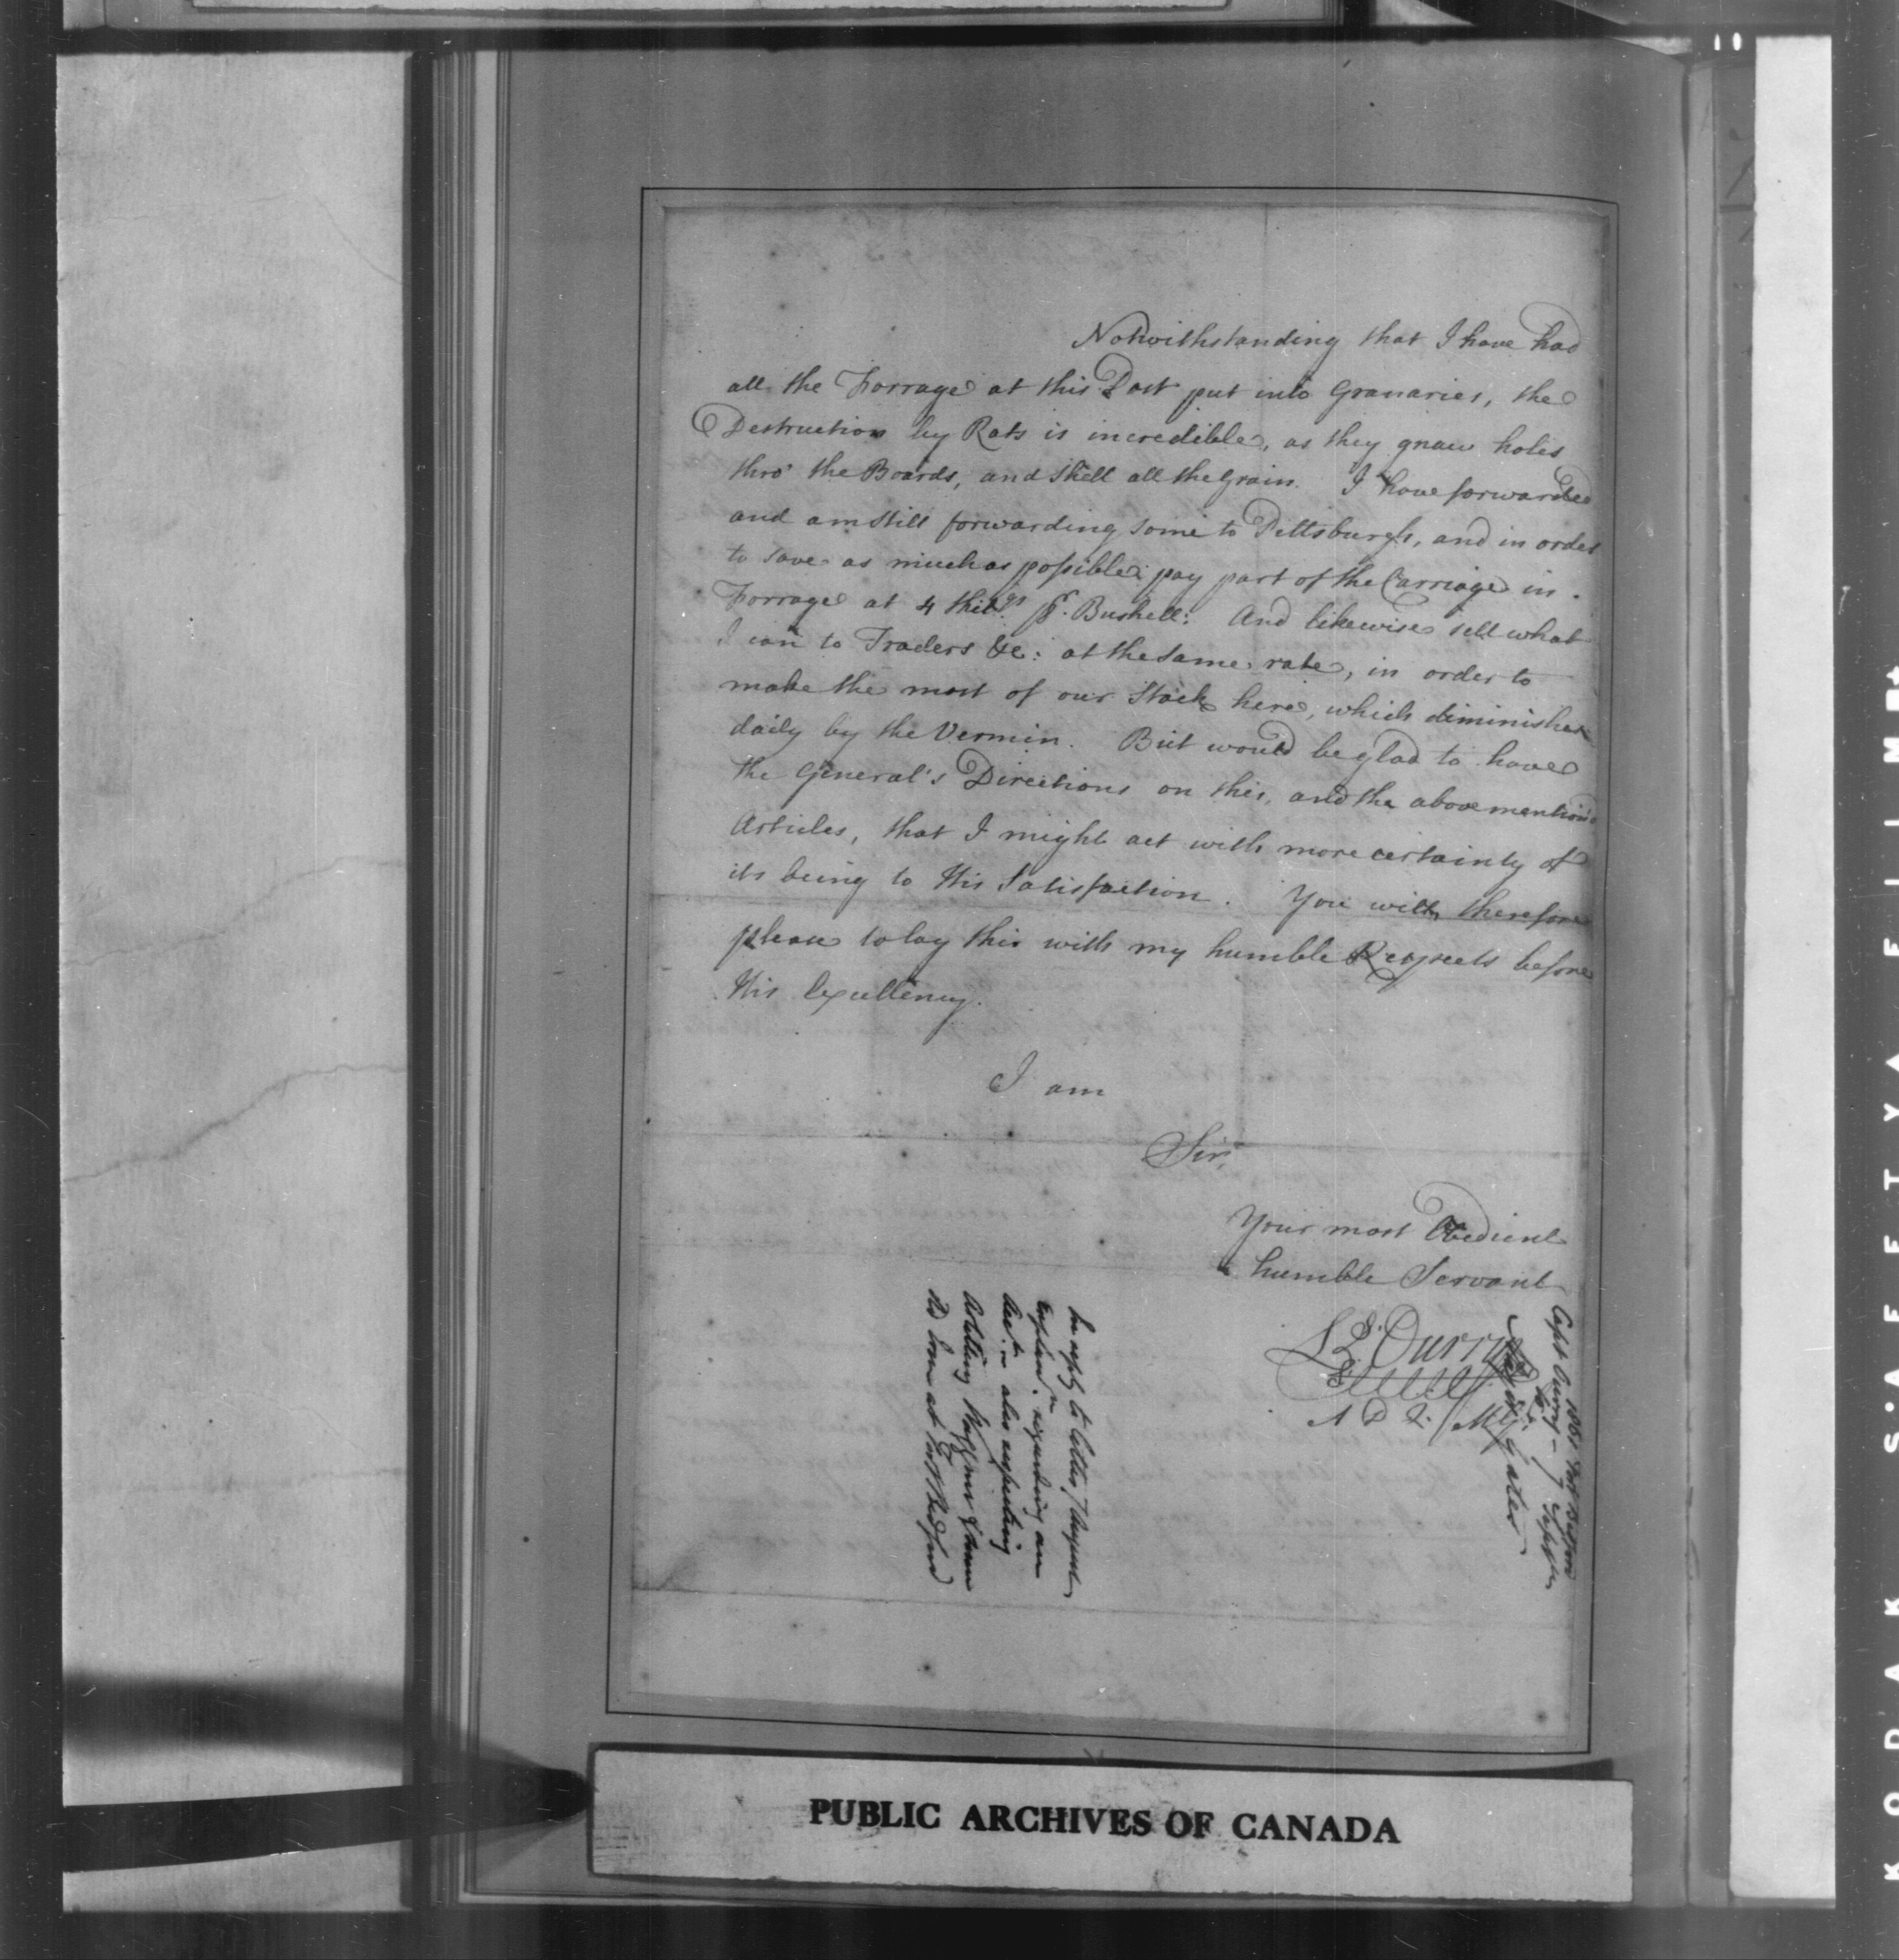 Notwithstanding that I have had
all the Forrage at this Post put into Granaries, the
Destruction by Rats is incredible, as they gnaw holes
thro' the Boards, and Shell all the Grain. I have forwarded
and am still forwarding some to Pittsburgh, and in order
to save as much as possible pay part of the Carriage in
Forrage at 4 Shillgs pr. Bushell: And likewise sell what
I can to Traders &c: at the same rate, in order to
make the most of our Stock here, which diminishes
daily by the Vermin. But would be glad to have
the General's Directions on this, and the abovemention'd
Articles, that I might act with more certainty of
its being to His Satisfaction. You will therefore
please to lay this with my humble Respects before
His Excellency.
I am
Sir,
Your most Obedient
humble Servant
L S Ourry
A D Q: M G
1761 Fort Bedford
Capt Ourry - 7 Septr
to
Major Gates
In reply to letter, 7 August
explann. regarding an
Acct. - also respecting
Artillery Waggons & Harness
to him at Fort Bedford
PUBLIC ARCHIVES OF CANADA
KODAK S'AFETY FILM